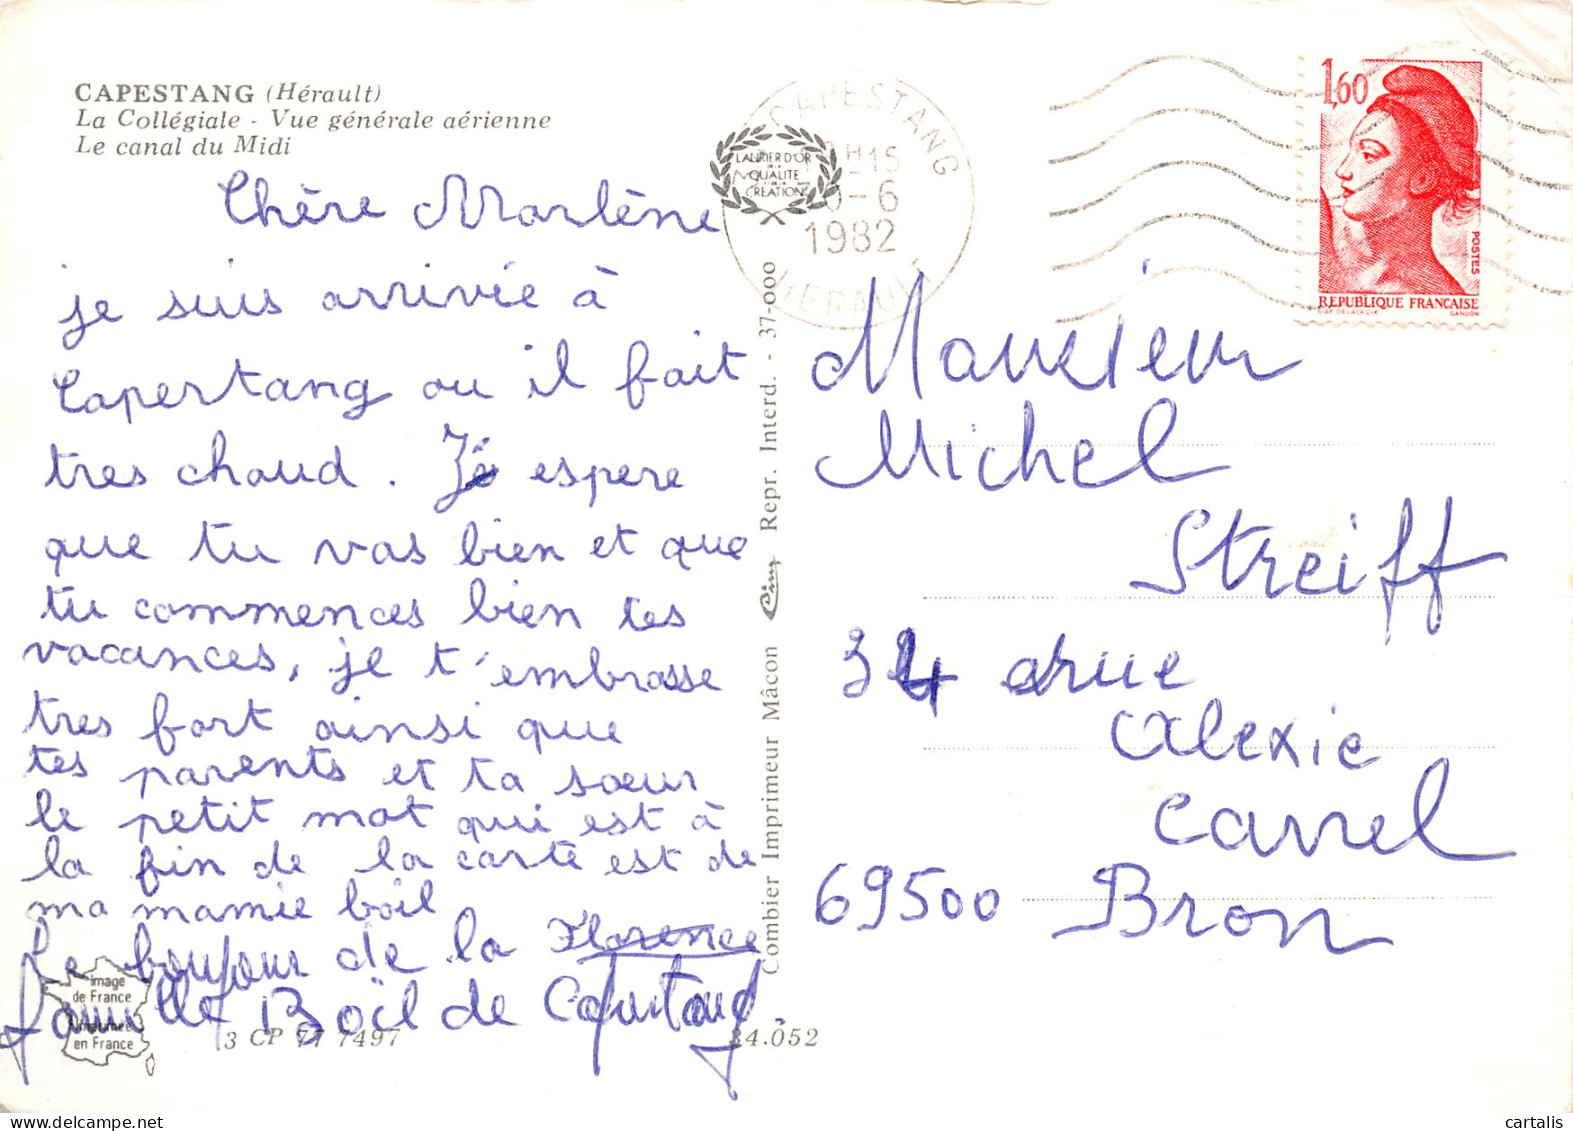 CAPESTANG (Hérault)
La Collégiale - Vue générale aérienne
Le canal du Midi
Chère Marlène
je suis arrivée à
Capestang ou il fait
tres chaud. Je espere
que tu vas bien et que
tu commences bien tes
vacances, je t'embrasse
tres fort ainsi que
tes parents et ta sœur
le petit mot qui est à
la fin de la carte est de
ma mamie boil
Florence
Le boujour de la
famille Boïl de Capestang.
Image
de France
Imprimée
en France
3 CP 77 7497
34.052
Combier Imprimeur Mâcon Cim Repr. Interd. - 37-000
LAURIER D'OR
DE LA
QUALITE
CREATION
CAPESTANG
H15
0-6
1982
HERAULT
1,60
POSTES
REPUBLIQUE FRANCAISE
D'AP. DELACROIX GANDON
Monsieur
Michel
Streiff
34 rue
Alexie
Carrel
69500 Bron
cartalis.com